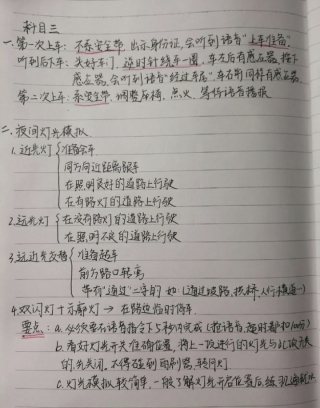 科目三
一、第一次上车：不系安全带，出示身份证，会听到语音“上车准备”
听到后下车：关好车门，逆时针绕车一圈，车左后有感应器，按下
感应器，会听到语音“经过车尾”，车右前同样有感应器
第二次上车：系安全带，调整座椅，点火，等待语音播报
二、夜间灯光模拟
1.近光灯 准备会车
同方向近距离跟车
在照明良好的道路上行驶
在有路灯的道路上行驶
2.远光灯 在没有路灯的道路上行驶
在照明不良的道路上行驶
3.远近光交替 准备超车
前方路口转弯
带有“通过”二字的 如（通过坡路、拱桥、人行横道…）
4.双闪灯+示廓灯 → 在路边临时停车.
要点：a.必须要在语音指令下5秒内完成（抢语音、超时都扣100分）
b.看好灯光开关准确位置，将上一项进行的灯光与此项
的光关闭，不得碰到雨刷器，转向灯
c.灯光模拟较简单，一般了解灯光开启位置后练几遍就